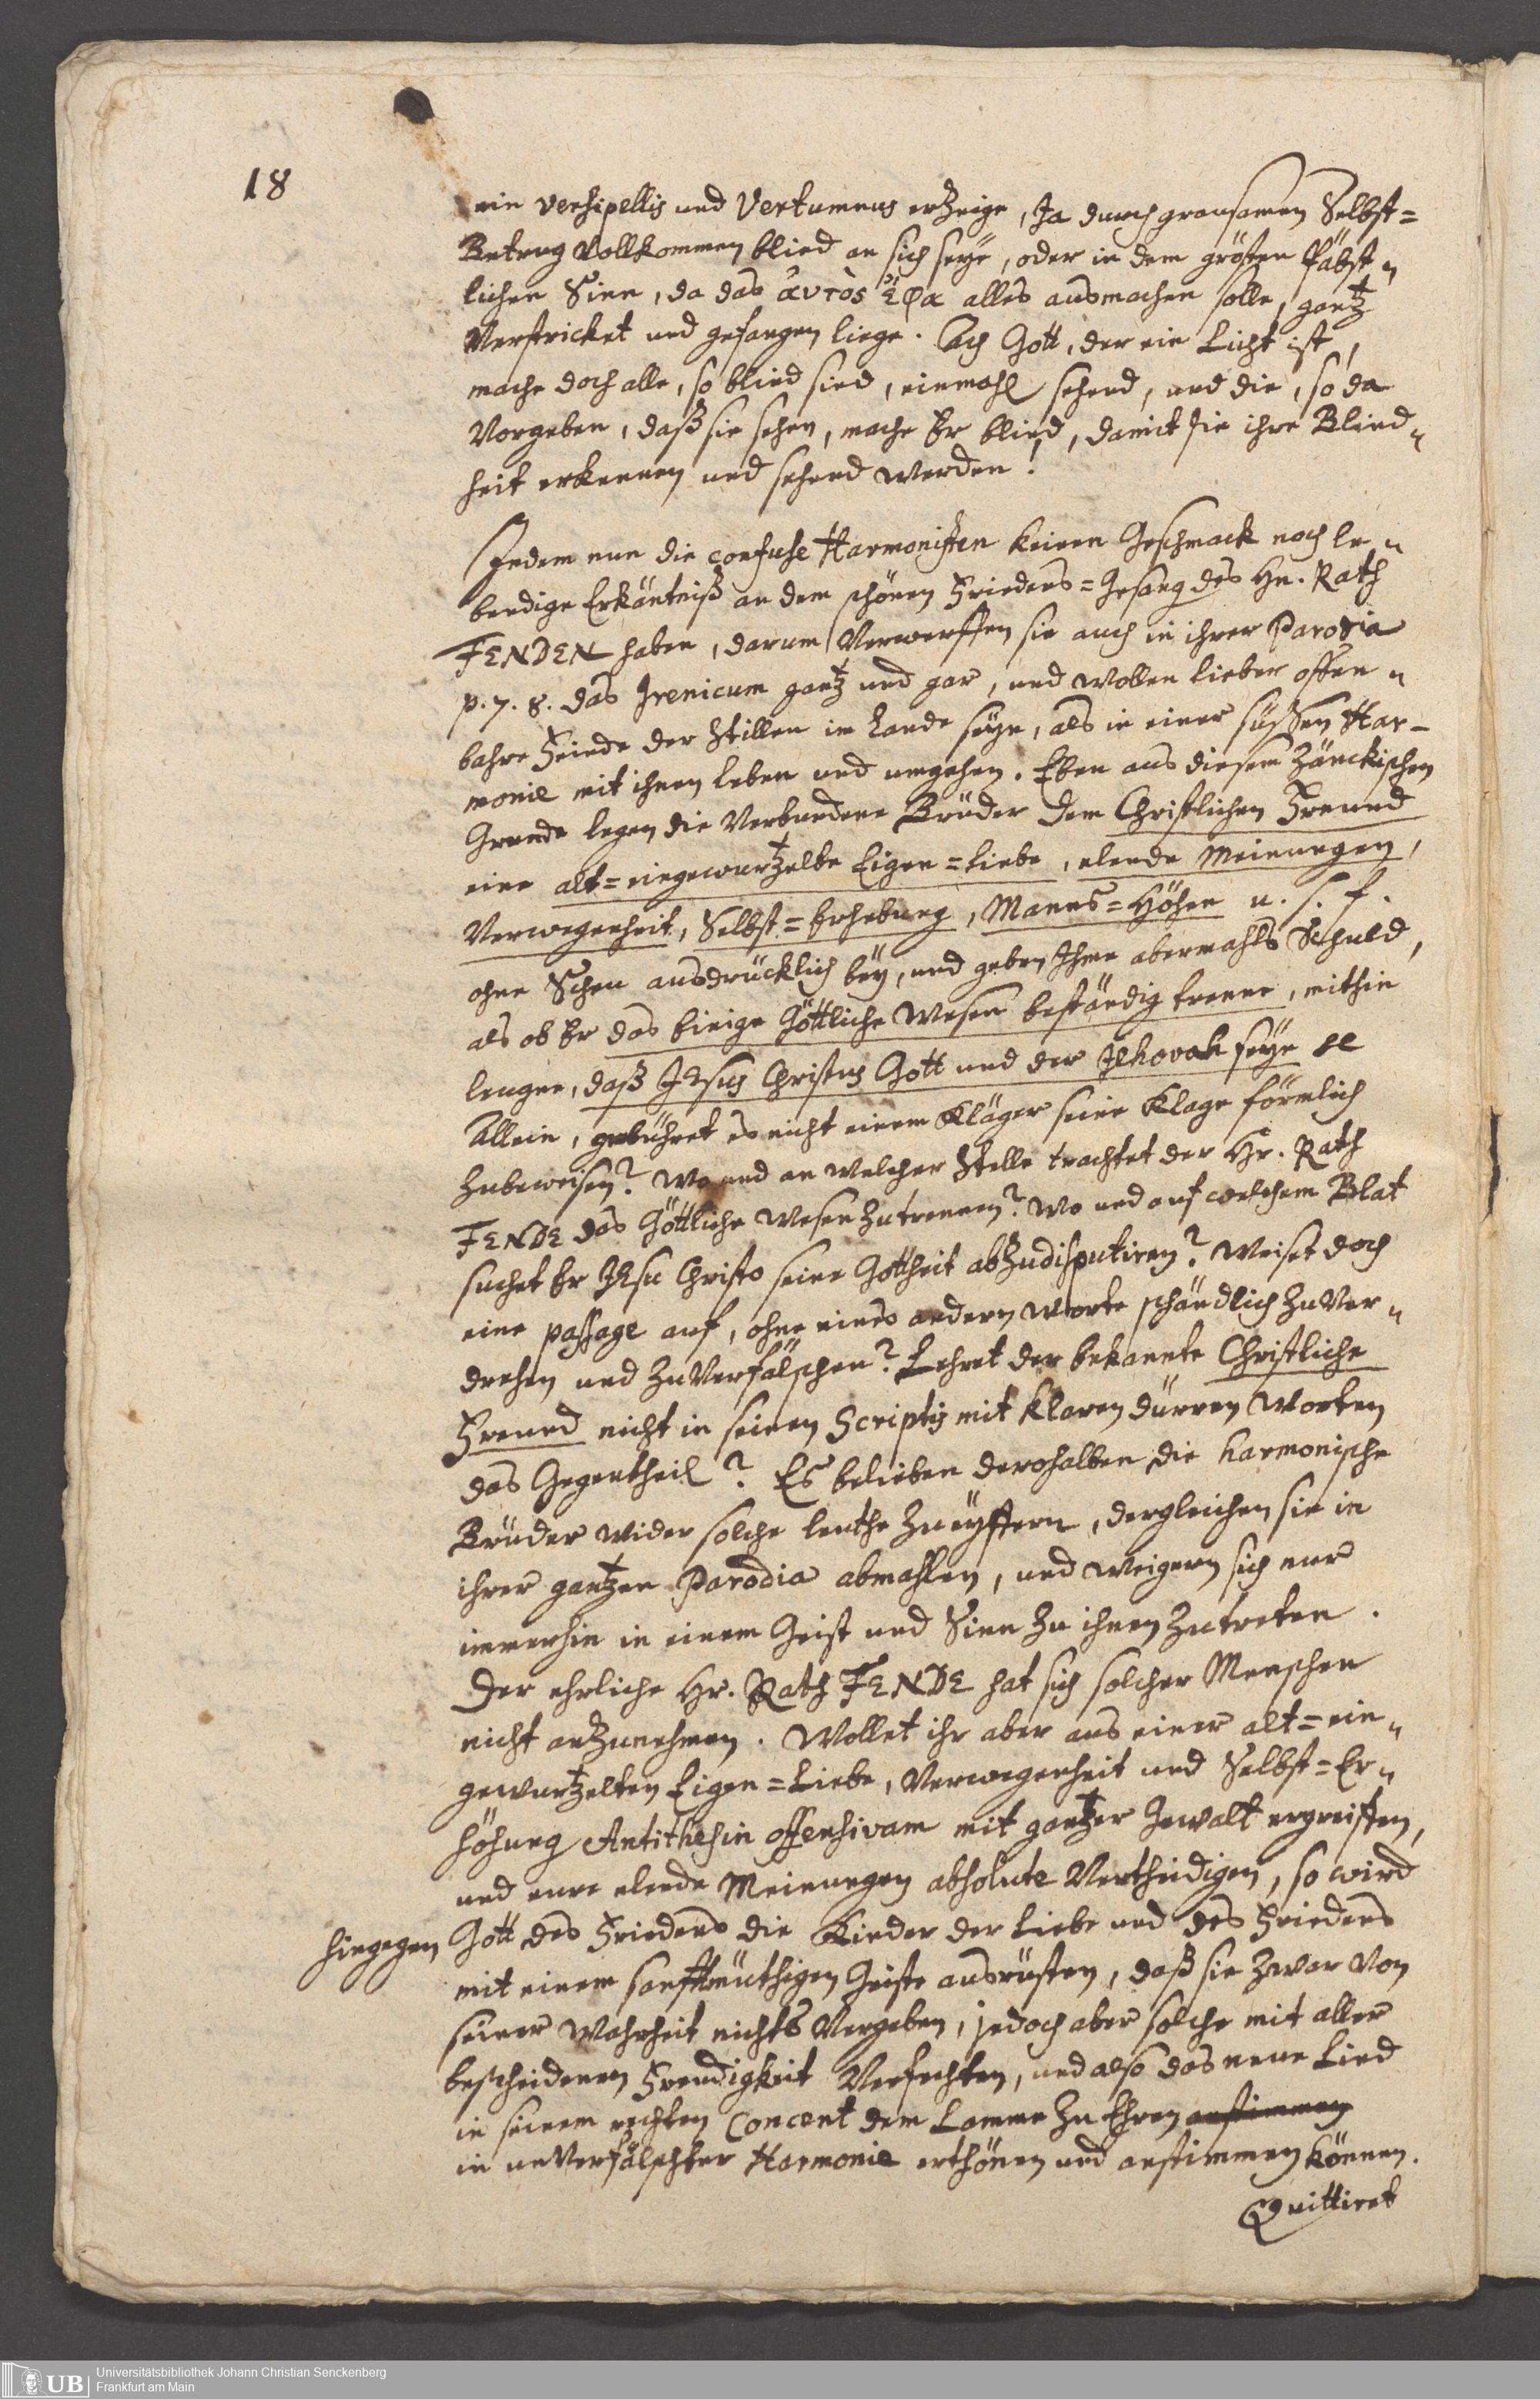 18
ein versipellis und Vertumnus erzeige, Ja durch grausamen Selbst=
Betrug vollkommen blind an sich seye, oder in dem grösten Päbst=
lichen Sinn, da das ἀυτὸς ἔφα alles ausmachen solle, gantz
verstricket und gefangen liege. Ach Gott, der ein Licht ist,
mache doch alle, so blind sind, einmahl sehend, und die, so da
vorgeben, daß sie sehen, mache Er blind, damit sie ihre Blind=
heit erkennen und sehend werden!
Indem nun die confuse Harmonisten keinen Geschmack noch le=
bendige Erkäntniß an dem schönen Friedens=Gesang des Hn. Rath
FENDEN haben, darum verwerffen sie auch in ihrer Parodia
p. 7. 8. das Irenicum gantz und gar, und wollen lieber offen=
bahre Feinde der Stillen im Lande seyn, als in einer süssen Har-
monie mit ihnen leben und umgehen. Eben aus diesem Zänckischen
Grunde legen die Verbundene Brüder dem Christlichen Freund
eine alt=eingewurtzelte Eigen=Liebe, elende Meinungen,
Verwegenheit, Selbst=Erhebung, Manns=Höhen u. s. f.
ohne Scheu ausdrücklich bey, und geben Ihme abermahls Schuld,
als ob Er das Einige Göttliche Wesen beständig trenne, mithin
leugne, daß JEsus Christus Gott und der Jehovah seye &c
Allein, gebühret es nicht einem Kläger seine Klage förmlich
zubeweisen? Wo und an welcher Stelle trachtet der Hr. Rath
FENDE das Göttliche Wesen zutrennen? Wo und auf welchem Blat
suchet Er JEsu Christo seine Gottheit abzudisputiren? Weiset doch
eine passage auf, ohne eines andern Worte schändlich zuver=
drehen und zuverfälschen? Lehret der bekannte Christliche
Freund nicht in seinen Scriptis mit klaren dürren Worten
das Gegentheil? Es belieben derohalben die harmonische
Brüder wider solche leuthe zueyffern, dergleichen sie in
ihrer gantzen Parodia abmahlen, und weigern sich nur
immerhin in einem Geist und Sinn zu ihnen zutreten.
Der ehrliche Hr. Rath FENDE hat sich solcher Menschen
nicht anzunehmen. Wollet ihr aber aus einer alt=ein=
gewurtzelten Eigen=Liebe, Verwegenheit und Selbst=Er=
höhung Antithesin offensivam mit gantzer Gewalt ergreiffen,
und eure elende Meinungen absolute vertheidigen, so wird
hingegen Gott des Friedens die Kinder der Liebe und des Friedens
mit einem sanfftmüthigen Geiste ausrüsten, daß sie zwar von
seiner Wahrheit nichts vergeben, jedoch aber solche mit aller
bescheidenen Freudigkeit verfechten, und also das neue Lied
in seinem rechten Concent dem Lamme zu Ehren anstimmen
in unverfälschter Harmonie erthönen und anstimmen können.
Quittiret
UB Universitätsbibliothek Johann Christian Senckenberg
Frankfurt am Main